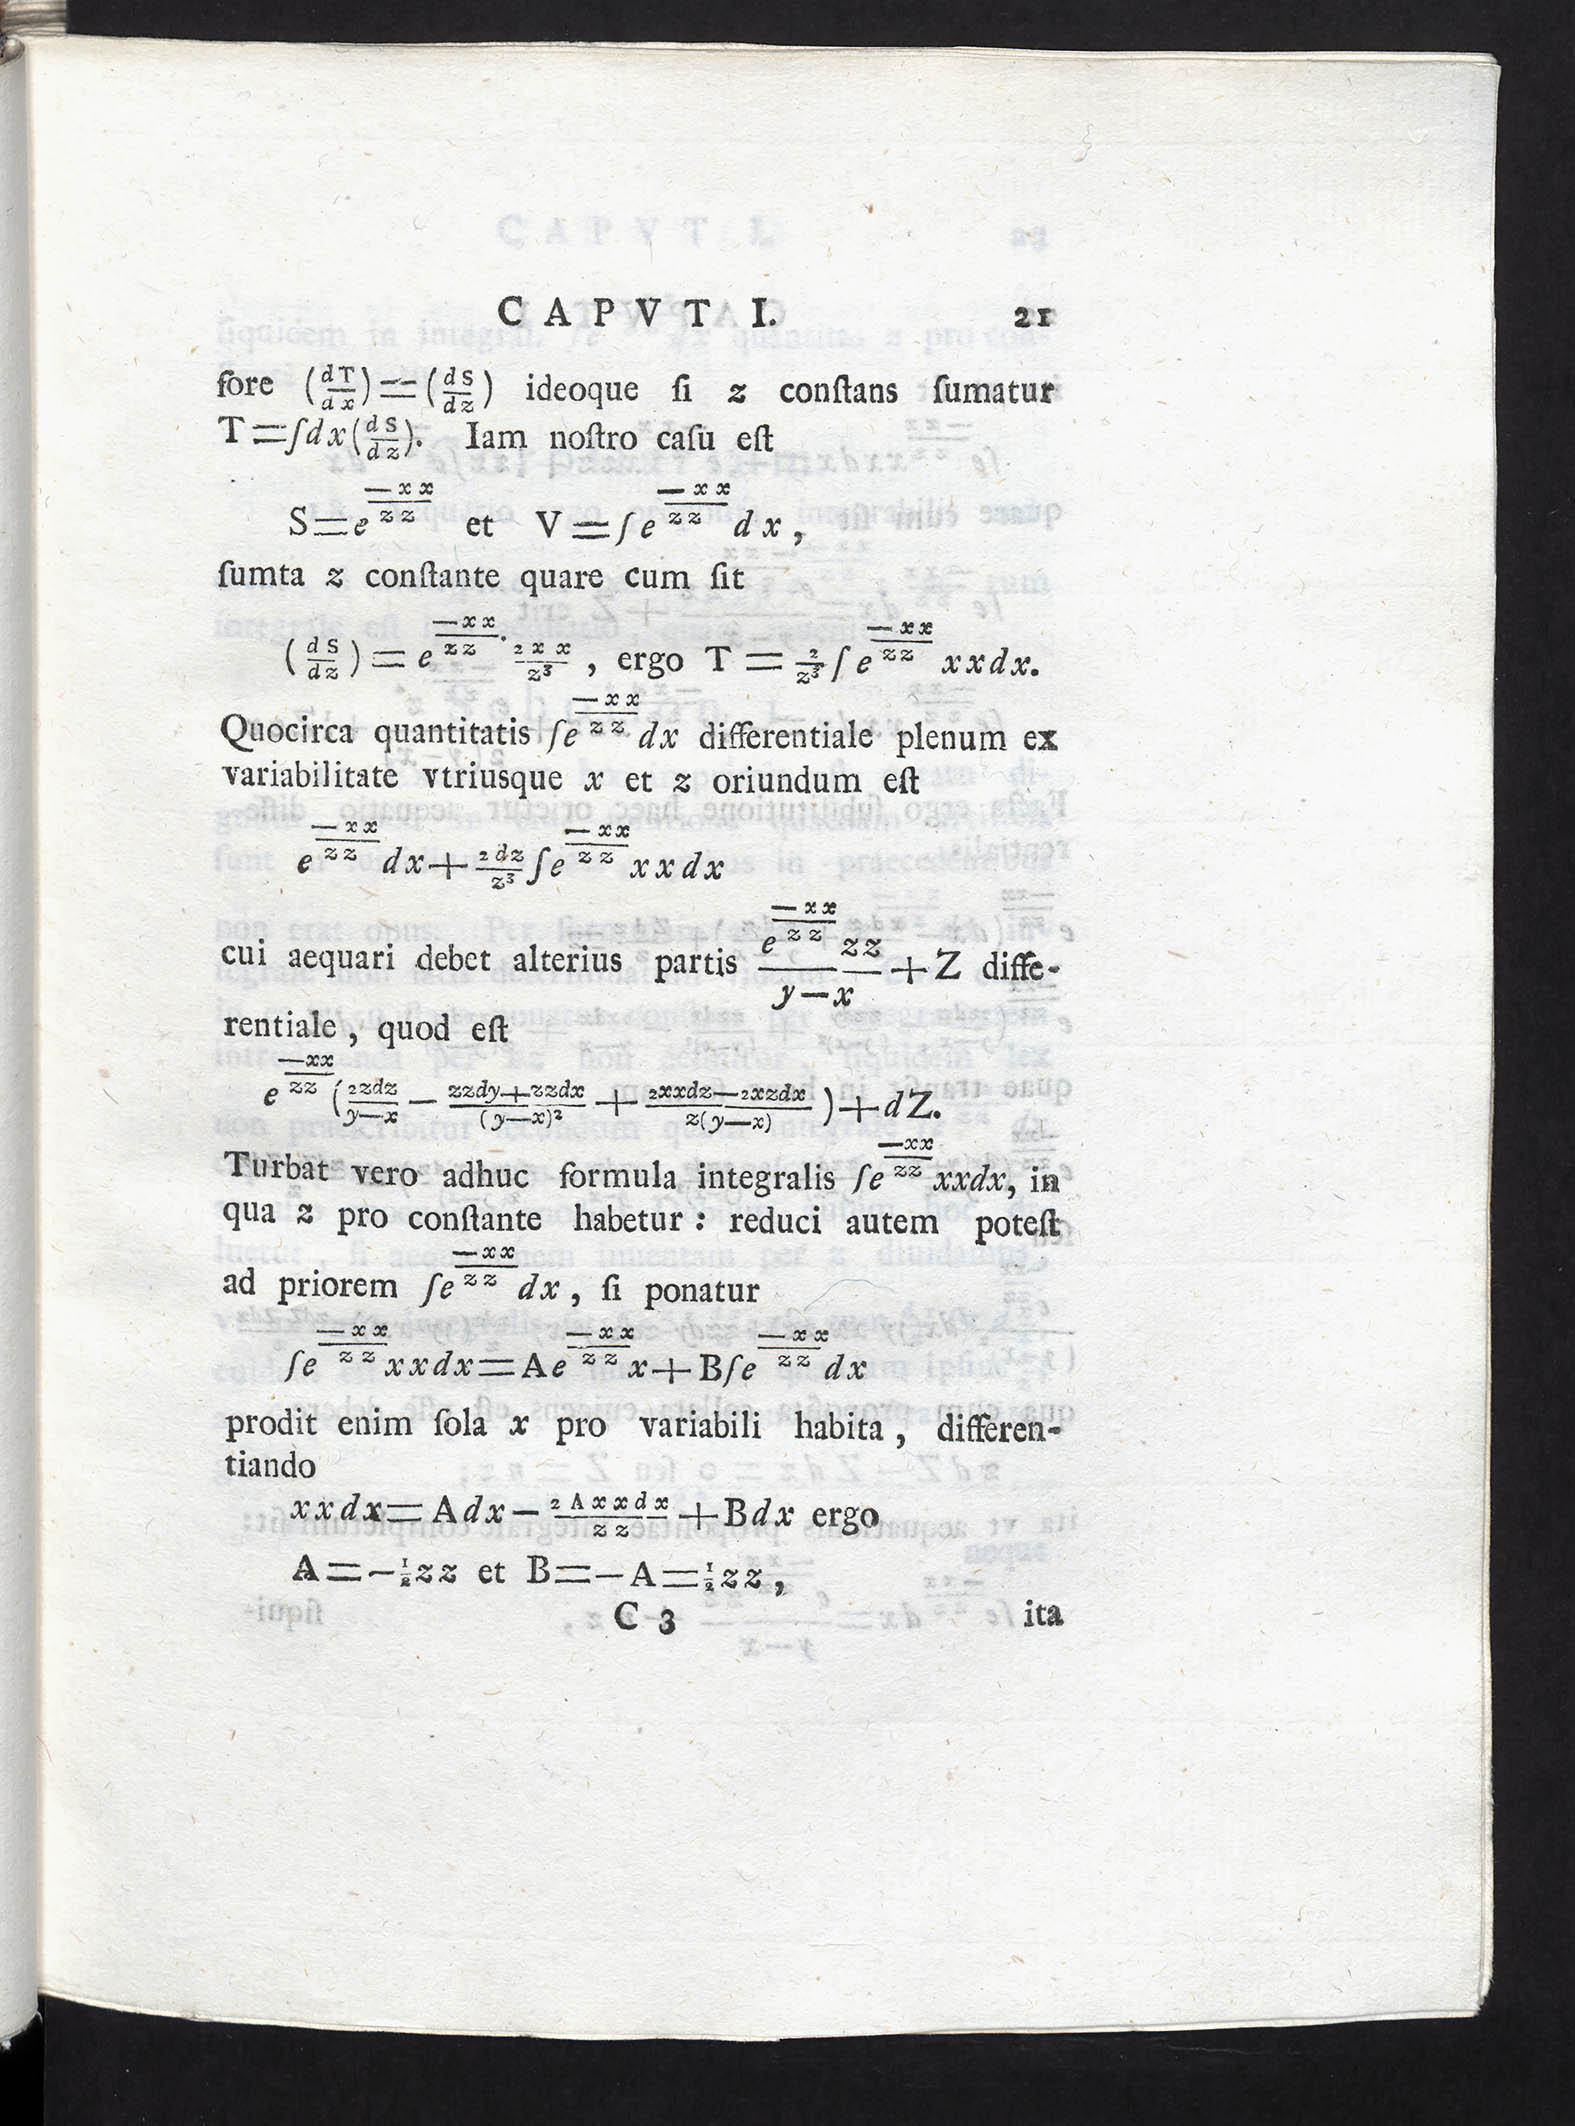 CAPVT I. 21
fore (dT/dx)=(dS/dz) ideoque ſi z conſtans ſumatur
T=∫dx(dS/dz). Iam noſtro caſu eſt
S=e^{-xx/zz} et V=∫e^{-xx/zz}dx,
ſumta z conſtante quare cum ſit
(dS/dz)=e^{-xx/zz}·2xx/z³, ergo T=2/z³∫e^{-xx/zz}xxdx.
Quocirca quantitatis ∫e^{-xx/zz}dx differentiale plenum ex
variabilitate vtriusque x et z oriundum eſt
e^{-xx/zz}dx+2dz/z³∫e^{-xx/zz}xxdx
cui aequari debet alterius partis e^{-xx/zz}zz/(y-x)+Z diffe-
rentiale, quod eſt
e^{-xx/zz}(2zdz/(y-x) - (zzdy+zzdx)/(y-x)² + (2xxdz-2xzdx)/(z(y-x)))+dZ.
Turbat vero adhuc formula integralis ∫e^{-xx/zz}xxdx, in
qua z pro conſtante habetur: reduci autem poteſt
ad priorem ∫e^{-xx/zz}dx, ſi ponatur
∫e^{-xx/zz}xxdx=Ae^{-xx/zz}x+B∫e^{-xx/zz}dx
prodit enim ſola x pro variabili habita, differen-
tiando
xxdx=Adx-2Axxdx/zz+Bdx ergo
A=-½zz et B=-A=½zz,
C 3 ita